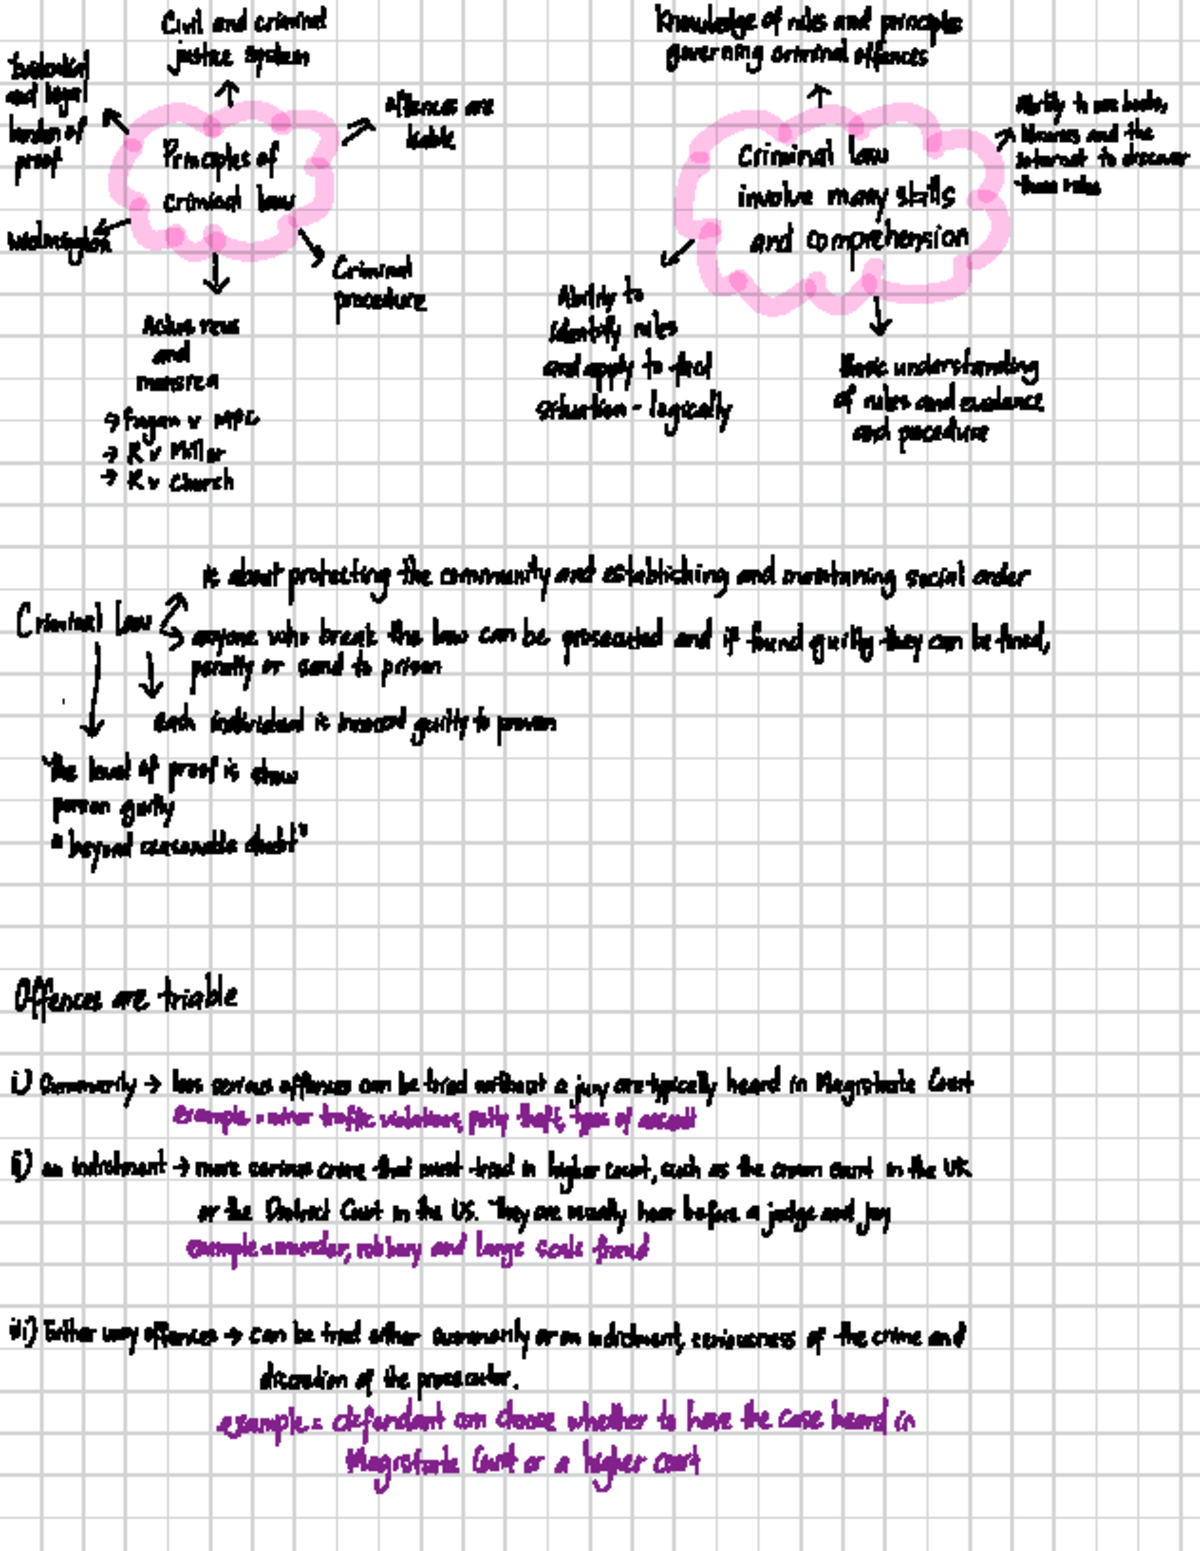 Civil and criminal
justice system
Evidential
and legal
burden of
proof
offences are
liable
Principles of
criminal law
Woolmington
Criminal
procedure
Actus reus
and
mensrea
→ Fagan v MPC
→ R v Miller
→ R v Church
Knowledge of rules and principle
governing criminal offences
Ability to use books,
libraries and the
internet to discover
these rules
Criminal law
involve many skills
and comprehension
Ability to
identify rules
and apply to fact
situation - logically
Basic understanding
of rules and evidence
and procedure
is about protecting the community and establishing and maintaining social order
Criminal law
anyone who break the law can be prosecuted and if found guilty they can be fined,
penalty or send to prison
each individual is innocent guilty to proven
The level of proof is show
person guilty
"beyond reasonable doubt"
Offences are triable
i) Summarily → less serious offences can be tried without a jury are typically heard in Magistrate Court
example = minor traffic violations, petty theft, types of assault
ii) an indictment → more serious crime that must tried in higher court, such as the crown court in the UK
or the District Court in the US. They are usually hear before a judge and jury
example = murder, robbery and large scale fraud
iii) Either way offences → can be tried either summarily or on indictment, seriousness of the crime and
discretion of the prosecutor.
example = defendant can choose whether to have the case heard in
Magistrate Court or a higher court